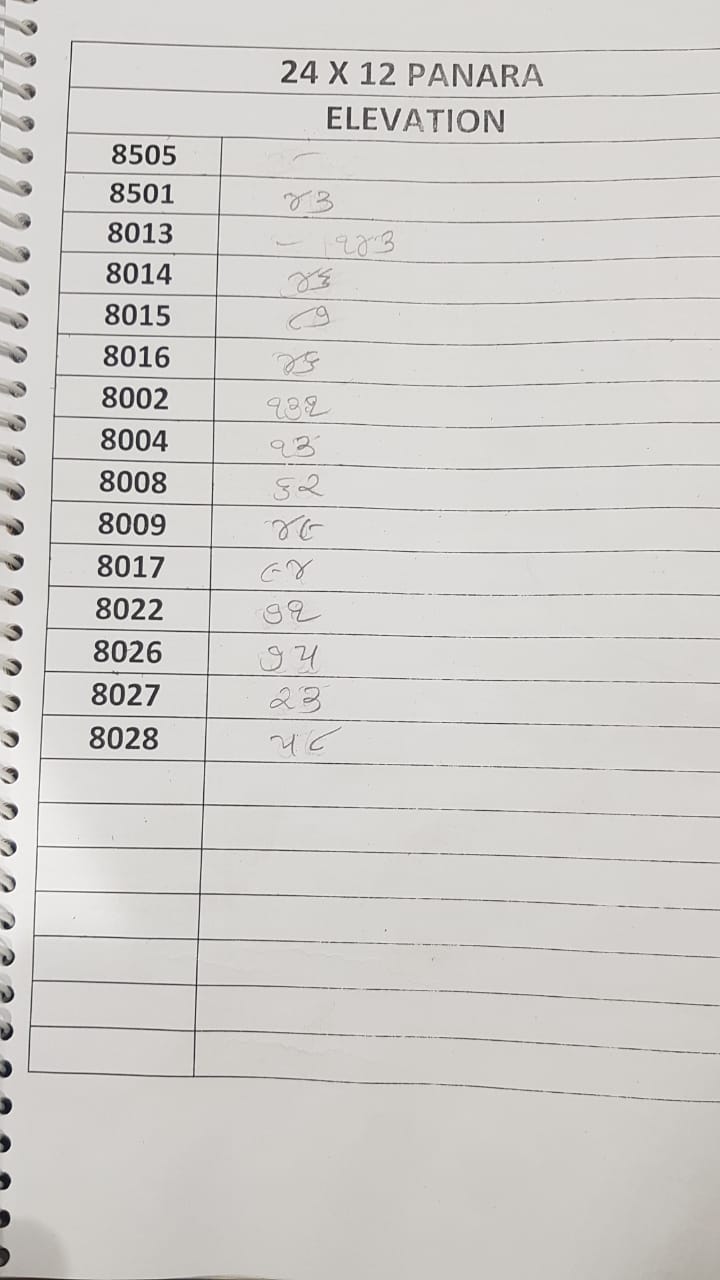 24 X 12 PANARA
ELEVATION
8505 -
8501 ૪૩
8013 - ૧૪૩
8014 ૪૬
8015 ૮૭
8016 ૪૬
8002 ૧૩૨
8004 ૧૩
8008 ૬૨
8009 ૪૯
8017 ૯૪
8022 ૭૨
8026 ૭૫
8027 ૨૩
8028 ૫૮